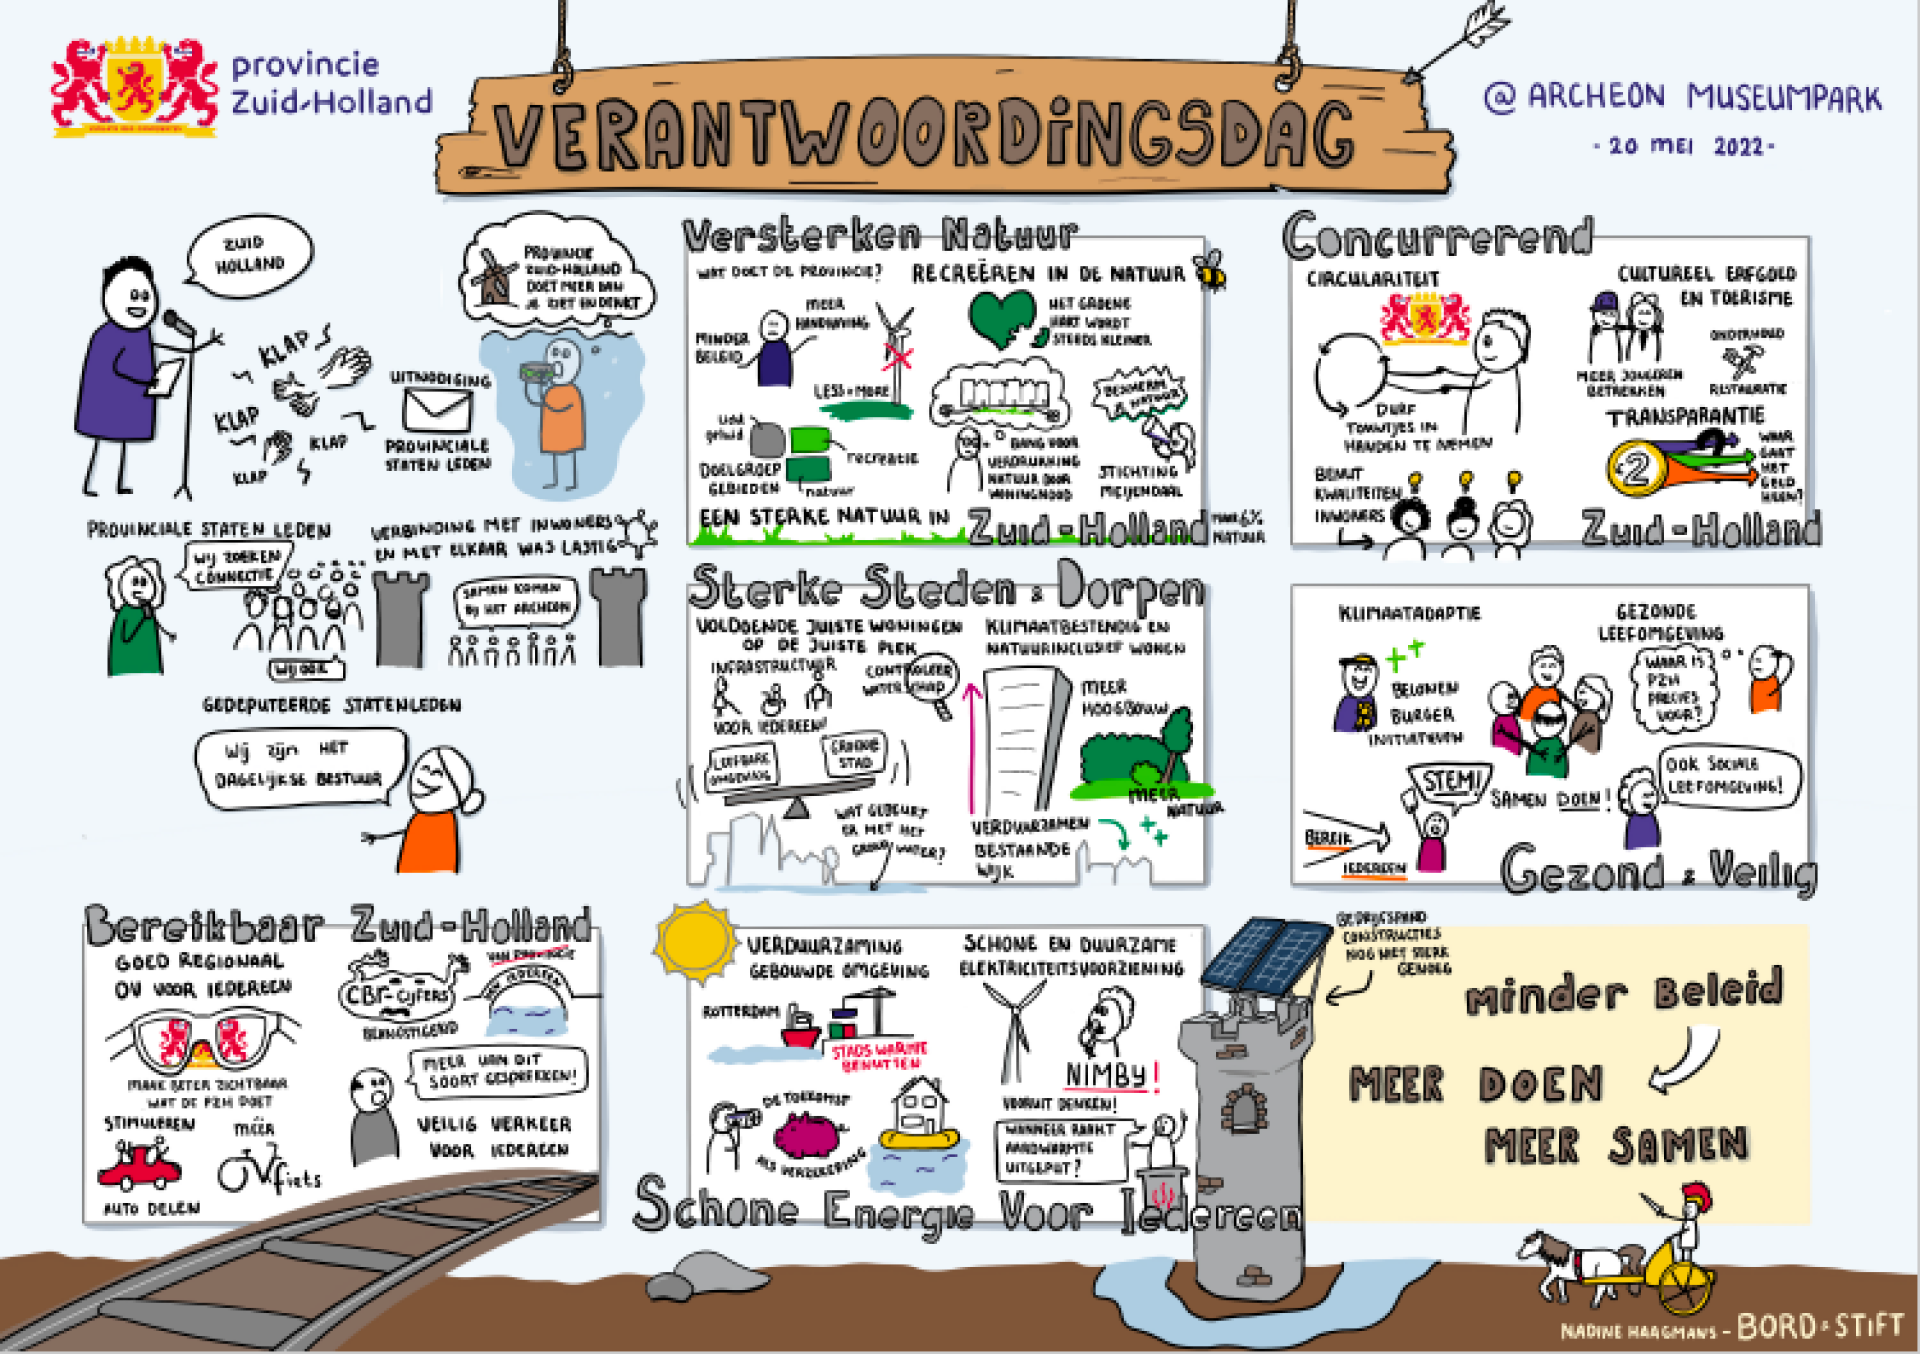 provincie
Zuid-Holland
VERANTWOORDINGSDAG
@ ARCHEON MUSEUMPARK
- 20 MEI 2022 -
ZUID
HOLLAND
PROVINCIE
ZUID-HOLLAND
DOET MEER DAN
JE ZIET EN DENKT
KLAP
KLAP
KLAP
KLAP
UITNODIGING
PROVINCIALE
STATEN LEDEN
PROVINCIALE STATEN LEDEN
WIJ ZOEKEN
CONNECTIE
WIJ OOK
VERBINDING MET INWONERS
EN MET ELKAAR WAS LASTIG
SAMEN KOMEN
BIJ HET ARCHEON
GEDEPUTEERDE STATENLEDEN
Wij zijn HET
DAGELIJKSE BESTUUR
Versterken Natuur
WAT DOET DE PROVINCIE?
MINDER
BELEID
MEER
HANDHAVING
LESS = MORE
geluid
DOELGROEP
GEBIEDEN
recreatie
natuur
RECREËREN IN DE NATUUR
HET GROENE
HART WORDT
STEEDS KLEINER
BANG VOOR
VERDRUKKING
NATUUR DOOR
WONINGNOOD
BESCHERM
DE NATUUR
STICHTING
MEIJENDAAL
EEN STERKE NATUUR IN
Zuid-Holland
6%
NATUUR
Concurrerend
CIRCULARITEIT
DURF
TOUWTJES IN
HANDEN TE NEMEN
BENUT
KWALITEITEN
INWONERS
CULTUREEL ERFGOED
EN TOERISME
MEER JONGEREN
BETREKKEN
ONDERHOUD
RESTAURATIE
TRANSPARANTIE
2
WAAR
GAAT
HET
GELD
HEEN?
Zuid-Holland
Sterke Steden & Dorpen
VOLDOENDE JUISTE WONINGEN
OP DE JUISTE PLEK
INFRASTRUCTUUR
VOOR IEDEREEN!
CONTROLEER
WATERSCHAP
LEEFBARE
OMGEVING
GROENE
STAD
WAT GEBEURT
ER MET HET
GRONDWATER?
KLIMAATBESTENDIG EN
NATUURINCLUSIEF WONEN
MEER
HOOGBOUW
MEER
NATUUR
VERDUURZAMEN
BESTAANDE
WIJK
KLIMAATADAPTIE
BELONEN
BURGER
INITIATIEVEN
GEZONDE
LEEFOMGEVING
WAAR IS
PZH
PRECIES
VOOR?
STEM!
SAMEN DOEN!
OOK SOCIALE
LEEFOMGEVING!
BEREIK
IEDEREEN
Gezond & Veilig
Bereikbaar Zuid-Holland
GOED REGIONAAL
OV VOOR IEDEREEN
MAAK BETER ZICHTBAAR
WAT DE PZH DOET
STIMULEREN
AUTO DELEN
MEER
OV fiets
CBR-CIJFERS
BEANGSTIGEND
VAN PROVINCIE
VAN IEDEREEN
MEER VAN DIT
SOORT GESPREKKEN!
VEILIG VERKEER
VOOR IEDEREEN
VERDUURZAMING
GEBOUWDE OMGEVING
ROTTERDAM
STADS WARMTE
BENUTTEN
DE TOEKOMST
ALS VERZEKERING
SCHONE EN DUURZAME
ELEKTRICITEITSVOORZIENING
NIMBY!
VOORUIT DENKEN!
WANNEER RAAKT
AARDWARMTE
UITGEPUT?
Schone Energie Voor Iedereen
BEDRIJFSPAND
CONSTRUCTIES
NOG NIET STERK
GENOEG
Minder Beleid
MEER DOEN
MEER SAMEN
NADINE HAAGMANS - BORD & STIFT